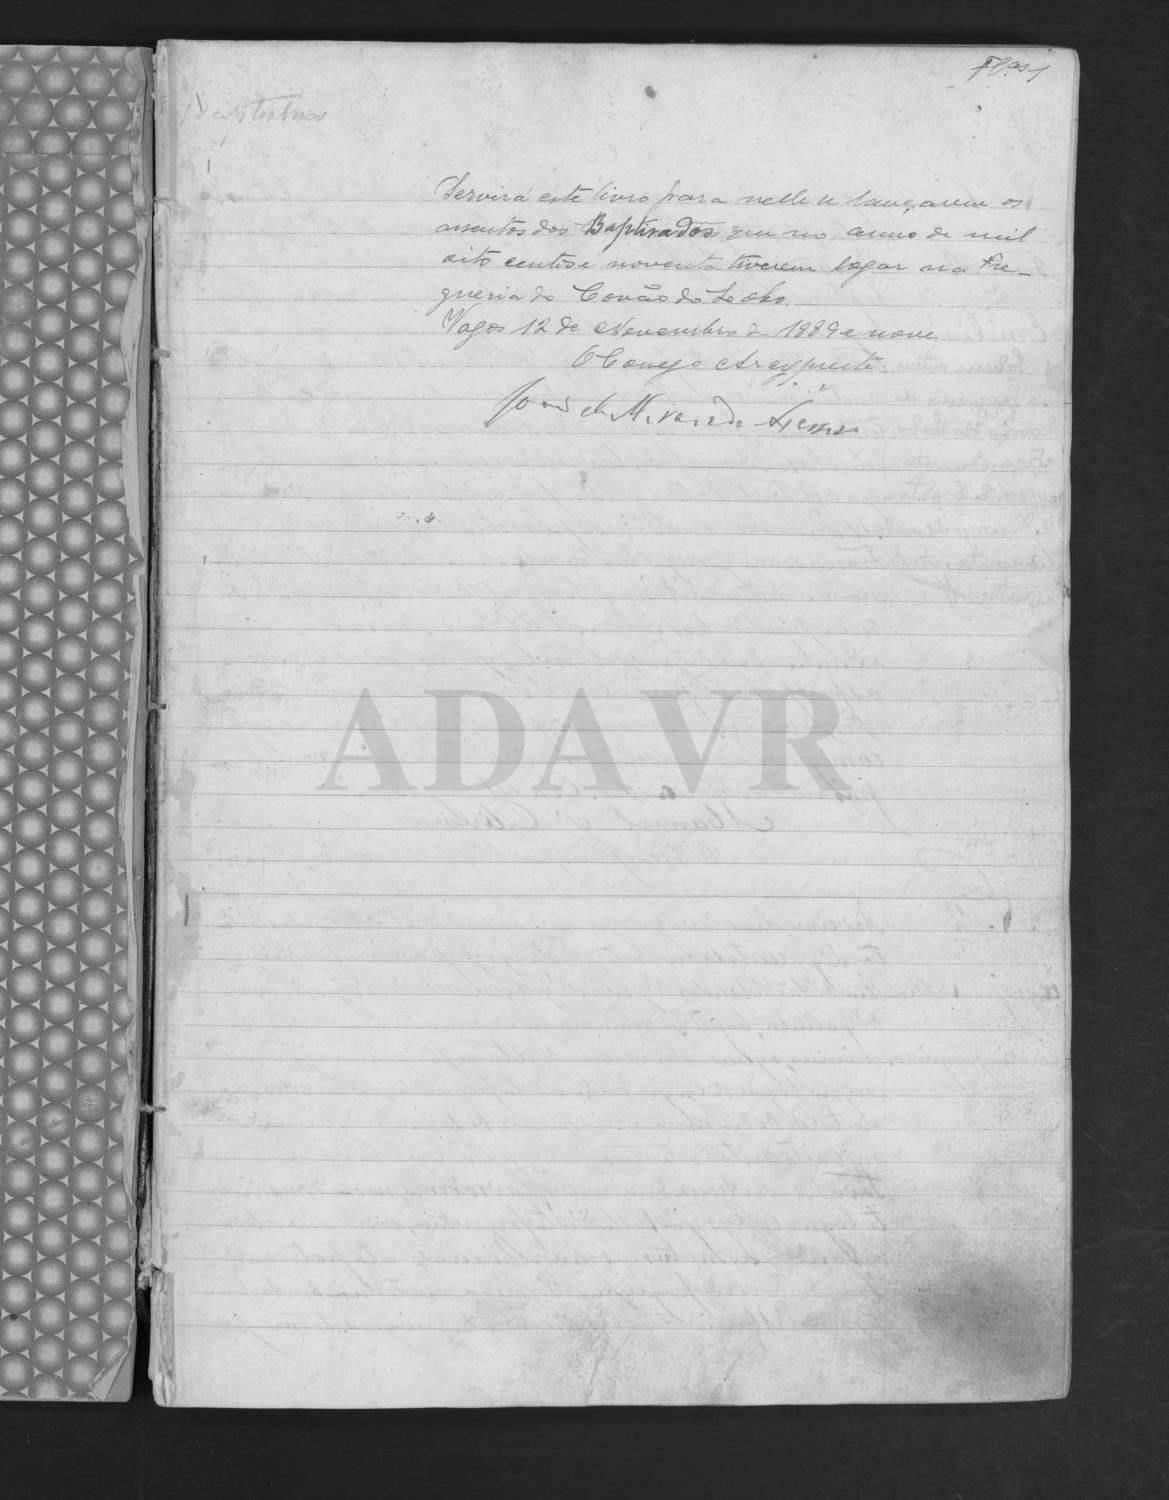 Fl.as 1
Baptismos
Servirá este livro para nelle se lançarem os
assentos dos Baptisados que no anno de mil
oito centos e noventa tiverem logar na Fre-
guesia do Covão do Lobo.
Vagos 12 de Novembro de 1889 e nove
O Conego Arcypreste
José de Miranda
ADAVR